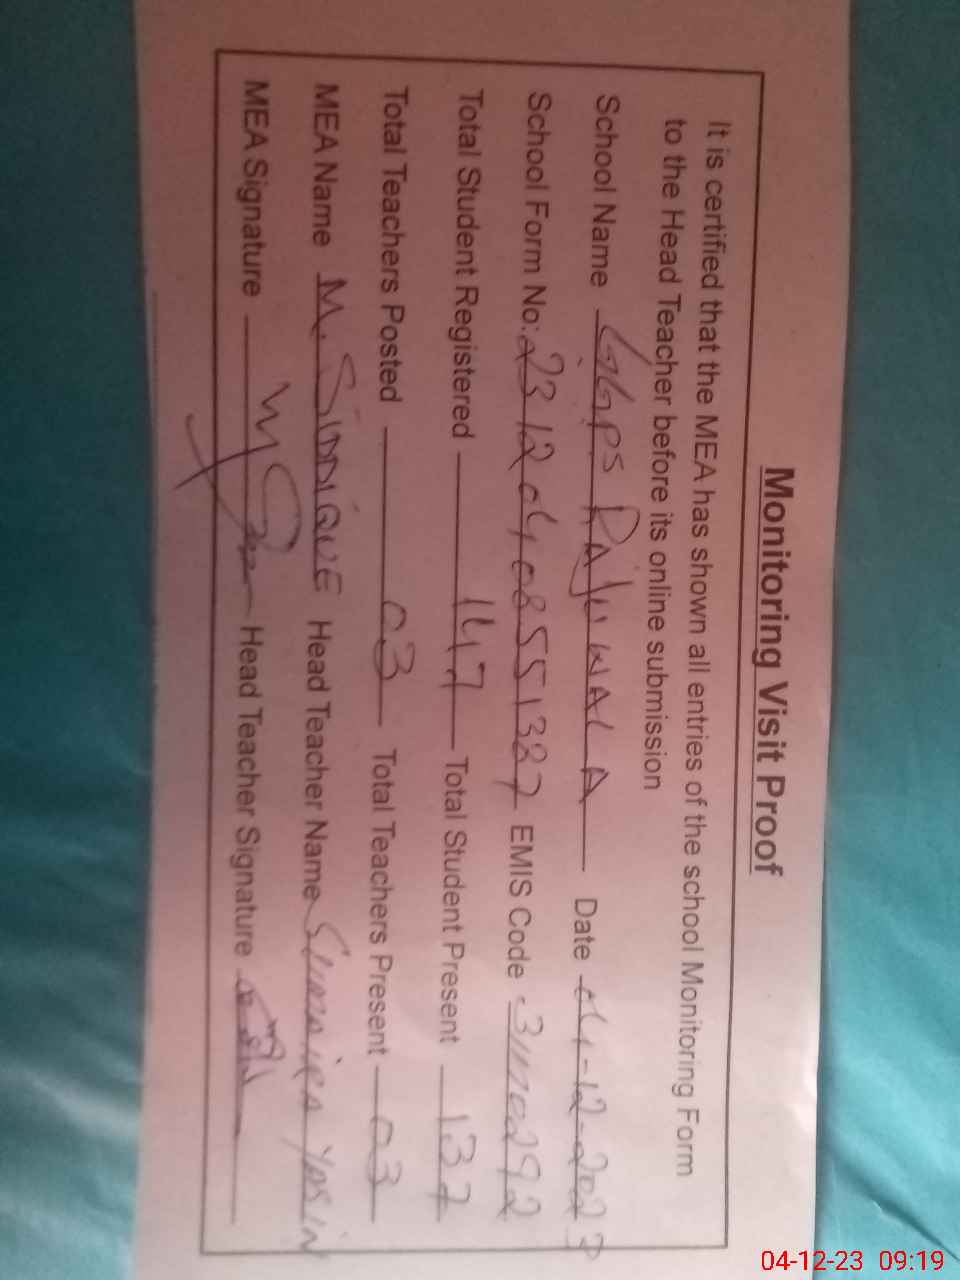 Monitoring Visit Proof
It is certified that the MEA has shown all entries of the school Monitoring Form
to the Head Teacher before its online submission
School Name GGPS Date 04-12-2023
School Form No: 23120408551387 EMIS Code
Total Student Registered 147 Total Student Present 137
Total Teachers Posted 03 Total Teachers Present 03
MEA Name M. SIDDIQUE Head Teacher Name Yasin
MEA Signature Head Teacher Signature
04-12-23 09:19